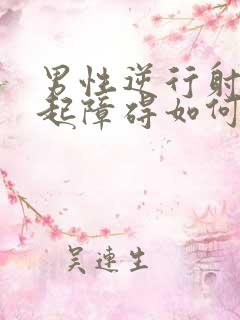 男性逆行射
起障碍如何
吴连生